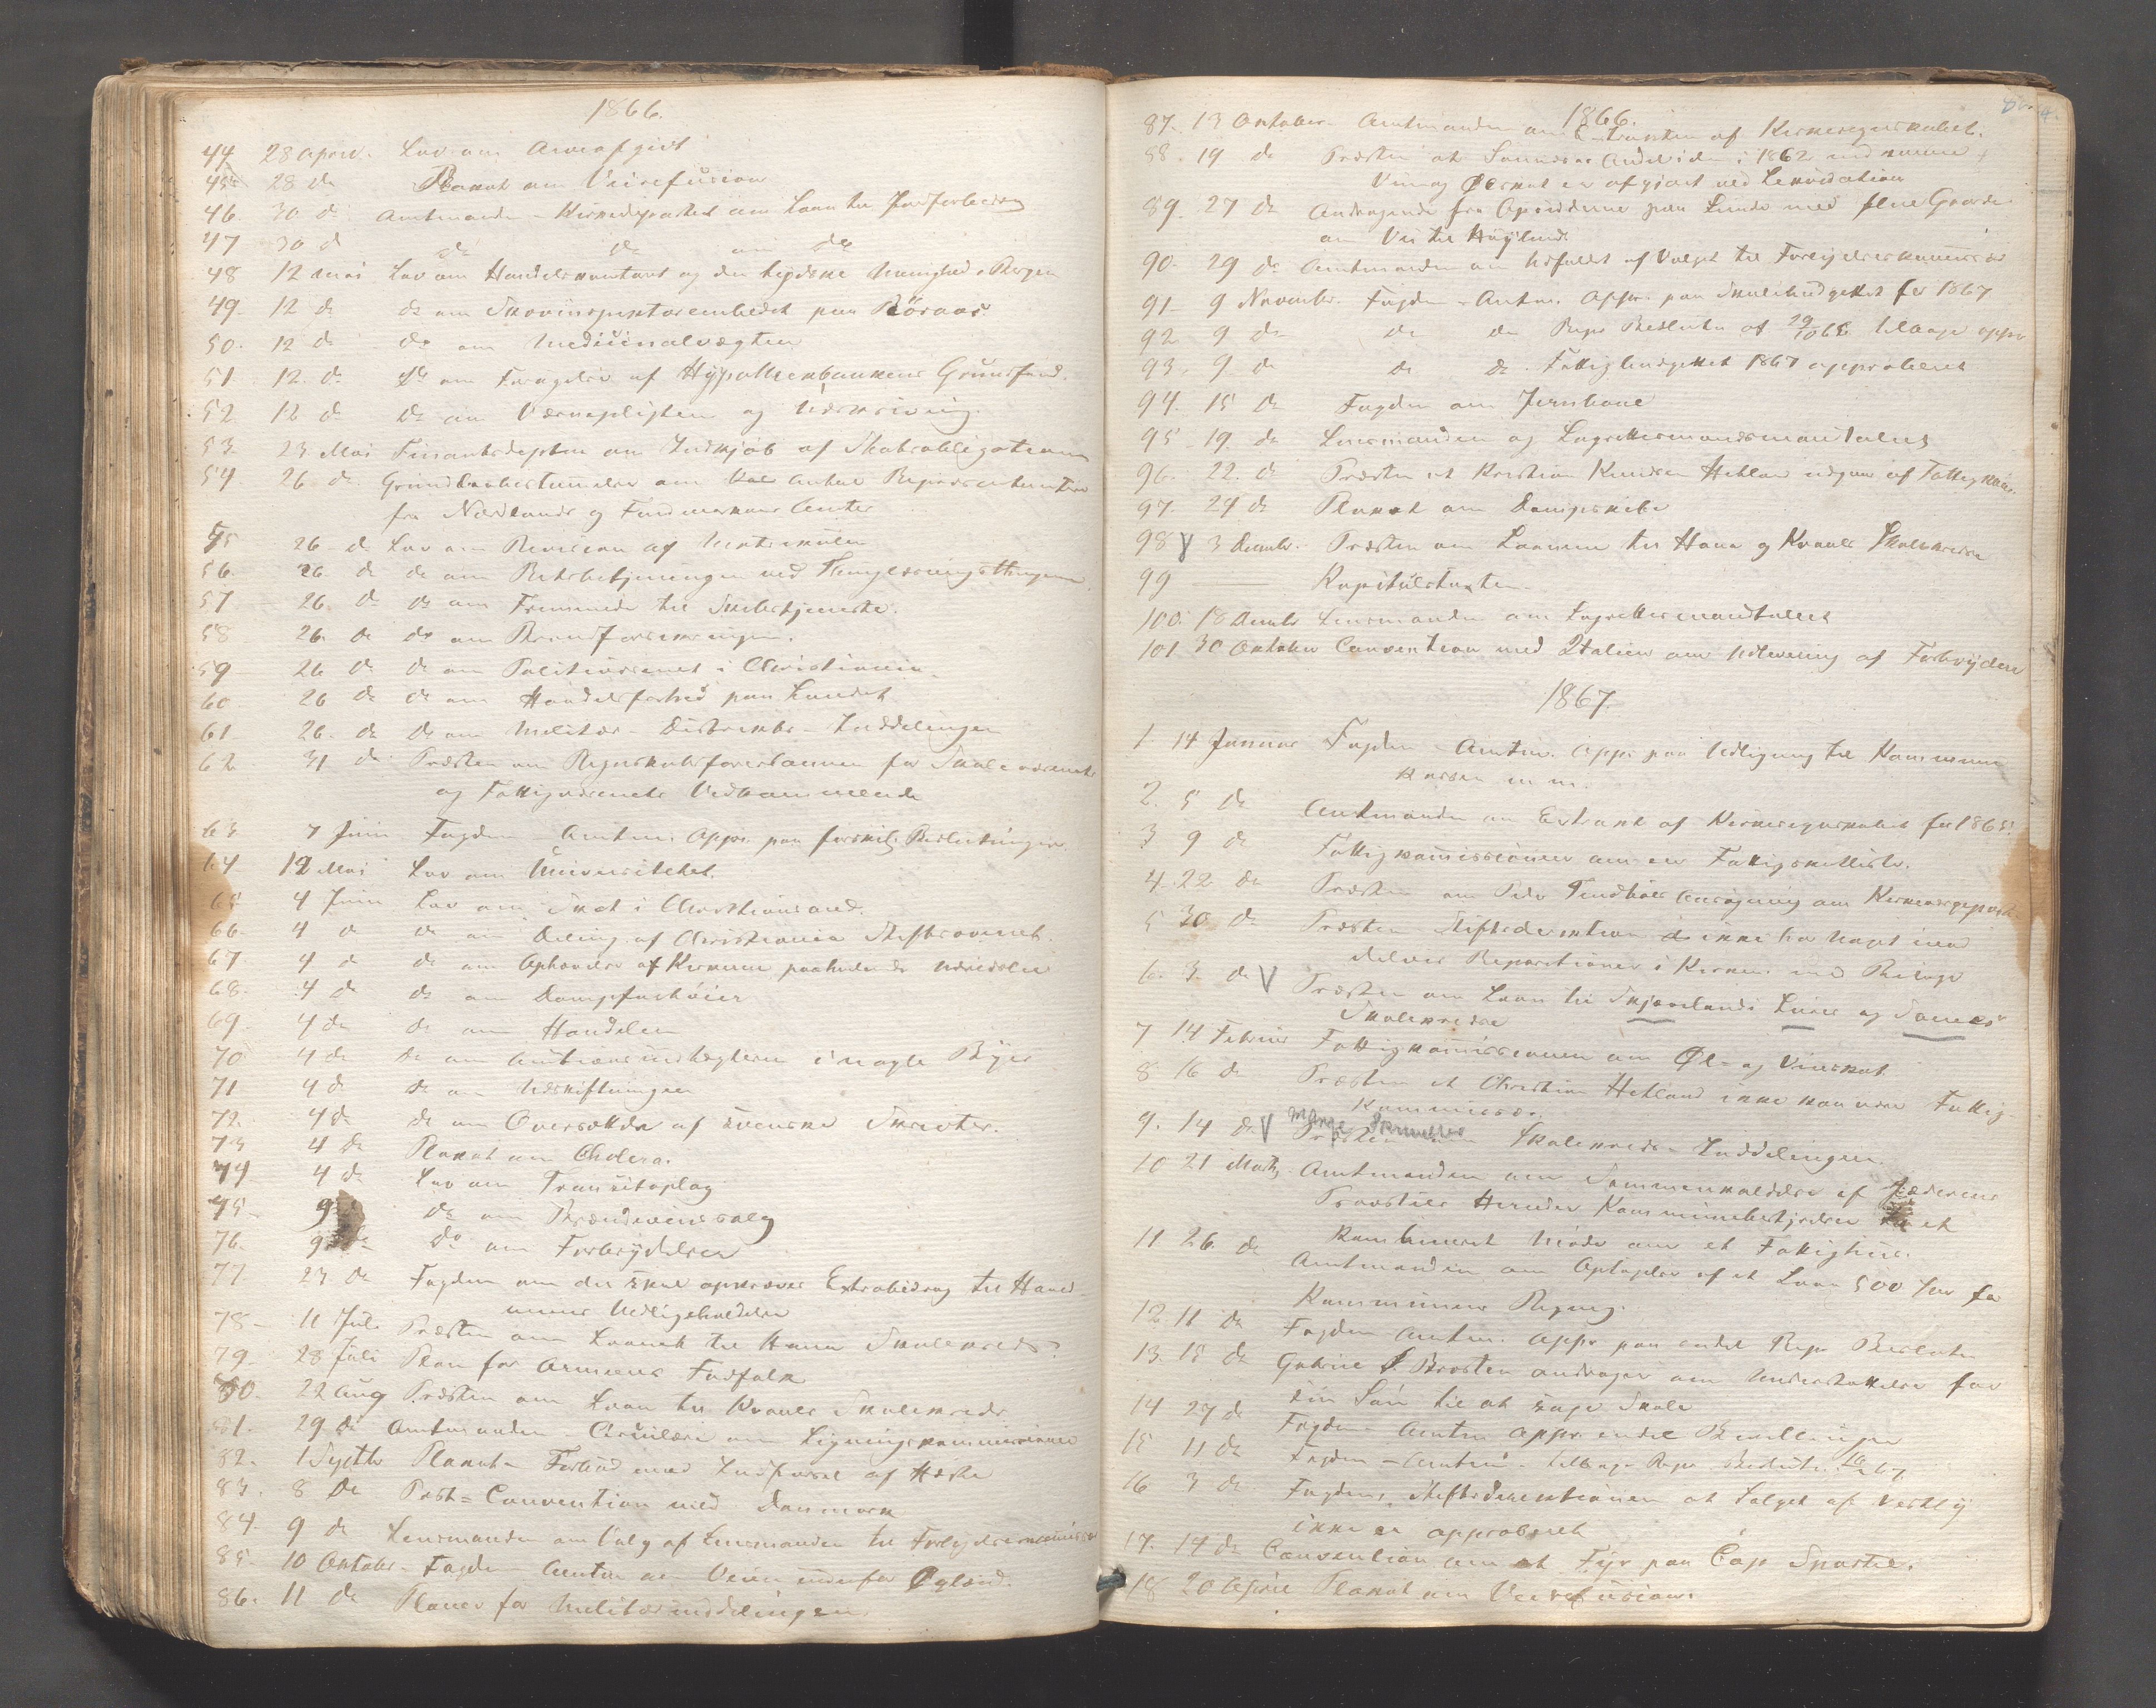 1866.
44 28 April. Lov om Arveafgivt
45 28 do Plakat om Veirefusion
46. 30 do Amtmanden - Kirkedepartet om Laan til Jordforbedring
47 30 do do do om do
48 12 Mai Lov om Handelskontoret og den tydske Menighed i Bergen
49. 12 do do om Skovinspektorembedet paa Röraas
50. 12 do do om Medicinalvægten
51. 12. do do om Forøgelse af Hypothekbankens Grundfond.
52 12 do do om Værnepligten og Udskrivning.
53. 23 Mai Finantsdeptm om Indkjøb af Statsobligationer
54. 26 do. Grundlovbestemmelse om Antal Repræsentanter
fra Nordlands og Finmarkens Amter
55 26 do Lov om Revision af Matrikulen
56. 26. do do om Retsbetjeningen ved Thinglæsningsthingene
57. 26 do do om Fremmede til Skibstjeneste.
58 26. do do om Brandforsikringen.
59 26 do do om Politivæsenet i Christiania
60. 26 do do om Handelsforhold paa Landet
61. 26. do do om Militær-Distrikts-Inddelingen
62 31 do Præsten om Regnskabsforestaaeren for Skolevæsenets
og Fattigvæsenets Vedkommende
63 7 Juni Fogden - Amtm. Appr. paa forskil. Beslutninger.
64. 12 Mai Lov om Universitetet.
65 4 Juni Lov om Skat i Christiansand.
66. 4 do do om Deling af Christiania Stiftsoverret.
67. 4 do do om Ophævelse af Kirkerne paahvilende Udredsler
68. 4 do do om Dampfartöier
69. 4 do do om Handelen
70 4 do do om Auktionsindtægterne i nogle Byer
71 4 do do om Udskiftningen
72. 4 do do om Oversættelse af svenske Skrifter.
73 4 do Plakat om Cholera.
74 4 do Lov om Transitoplag
75 9 do om Brændevinssalg
76. 9 do do om Forbrydelser
77. 23 do Fogden om der skal opkræves Extrabidrag til Havnenes
Vedligeholdelse
78. 11 Juli Præsten om Laanet til Hana Skolekreds.
79. 28 Juli Plan for Armeens Fodfolk
80. 22 Aug Præsten om Laan til Kvaals Skolekreds
81. 29 do Amtmanden - Cirkulære om Ligningskommissionen
82. 1 Septbr Plakat - Forbud mod Indførsel af Heste
83. 8 do Post-Convention med Danmark
84. 9 do Lensmanden om Valg af Lensmanden til Forligelseskommissær
85. 10 Oktober - Fogden Amtm om Veien indenfor Øglænd.
86. 11 do Planer for Militærinddelingen
1866.
87. 13 Oktober. Amtmanden om Extrakten af Kirkeregnskabet.
88. 19 do Præsten at Sonnes Andel i den i 1862
Vin og Ølskat er afgjort ved Likvidation
89. 27 do Andragende fra Opsidderne paa Lunde med flere Gaarde
om Vei til Höyland
90. 29 do Amtmanden om Udfaldet af Valget til Forligelseskommissær
91. 9 November. Fogden - Amtm. Appr. paa Skolebudgettet for 1867
92 9 do do do Repr Beslutn af 29/10 65 tilbage appr
93. 9 do do do. Fattigbudgettet 1867 approberet
94. 15 do Fogden om Jernbane
95 19. do Lensmanden og Lagrettesmandsmandtallet
96. 22. do Præsten at Kristian Knudsen Hetland udgaar af Fattigkom.
97 24 do Plakat om Dampskibe
98 V 3 Decmbr. Præsten om Laanene til Hana og Kvaals Skolekredse
99 — Kapitelstaxten
100. 18 Decmbr Lensmanden om Lagrettesmandtallet
101 30 Oktober Convention med Italien om Udlevering af Forbrydere
1867.
1. 14 Januar Fogden - Amtm. Appr paa Udligning til Kommune
kassen m m.
2. 5 do Amtmanden om Extrakt af Kirkeregnskabet for 1865
3 9 do Fattigkommissionen om en Fattigskatliste.
4. 22 do Præsten om Peder Ansøgning om Kirkeværgepost
5 30 do Præsten Stiftsdirektion ikke har Noget imod
delvis Reparationer i Kirken med Bilage
6. 3. do V Præsten om Laan til Skjævelands Lura og Sannes
Skolekredse
7 14 Februar Fattigkommissionen om Øl- og Vinskat.
8 16 do Præsten at Christian Hetland ikke kan være Fattig-
Kommissær.
9. 14 do V Præsten om Skolekreds-Inddelingen.
10 21 Marts. Amtmanden om Sammenkaldelse af Jæderens
Provsties Herreder Kommunebestyrelser til et
kombineret Møde om et Fattighus.
11. 26. do Amtmanden om Optagelse af et Laan 500 Spd for
Kommunens Regning.
12. 11 do Fogden Amtm. Appr paa endel Repr Beslutn
13. 15 do Gabriel Ø. Braasten andrager om Understøttelse for
sin Søn til at søge Skole
14 27 do Fogden - Amtm Appr endel Bevillinger
15 11 do Fogden - Amtm. tilbage Repr. Beslutn.
16 3 do Fogden, Stiftsdirektionen at Salget af Vestly
ikke er approberet
17. 14 do Convention om et Fyr paa Cap Spartel.
18 20 April Plakat om Veirefusion.